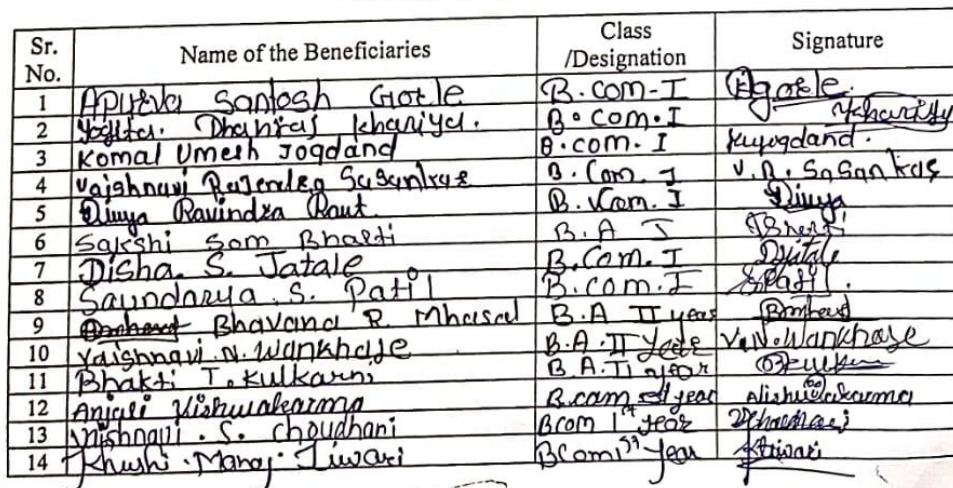 Sr. No. Name of the Beneficiaries Class /Designation Signature
1 Apurva Santosh Gotle B.com-I Agotle
2 Yogita. Dhanraj Khariya. B.com.I Khariya
3 Komal Umesh Jogdand B.com. I kujogdand.
4 Vaishnavi Rajendra Sasankar B.Com. I V.R. Sasankar
5 Divya Ravindra Raut. B.Com. I Divya
6 Sakshi Som Bharti B.A I
7 Disha. S. Jatale B.Com. I DJatale
8 Saundarya. S. Patil B.com.I SPatil.
9 Bhavana R. Mhasal B.A II year
10 Vaishnavi.N.Wankhade B.A.II Year V.N.Wankhade
11 Bhakti T.Kulkarni B.A.II year
12 Anjali Vishwakarma B.com year Vishwakarma
13 S. Choudhari Bcom 1st year
14 Khushi.Manoj.Tiwari BCom 1st year Ktiwari